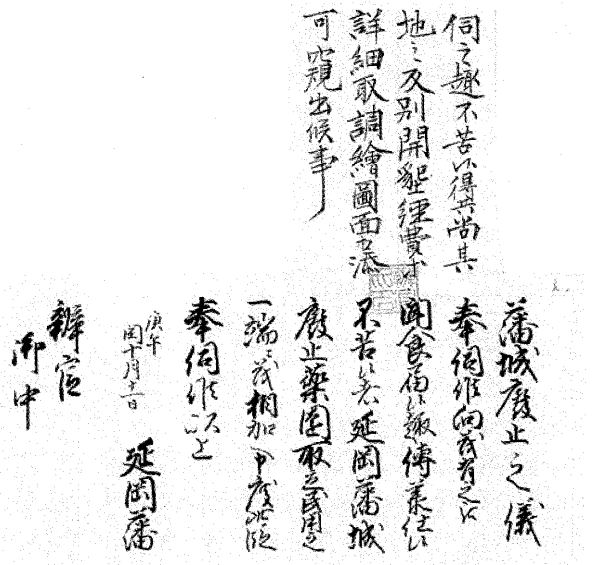 伺之趣不苦候得共尚其
地之反別開墾経費等
詳細取調絵図面相添
可窺出候事
藩城廃止之儀
奉伺候向茂有之候
聞食届候趣傳承仕候
不苦候者延岡藩城
廃止薬園取立民用之
一端ニ茂相加へ申度此段
奉伺候以上
庚午
閏十月十二日
延岡藩
辨官
御中